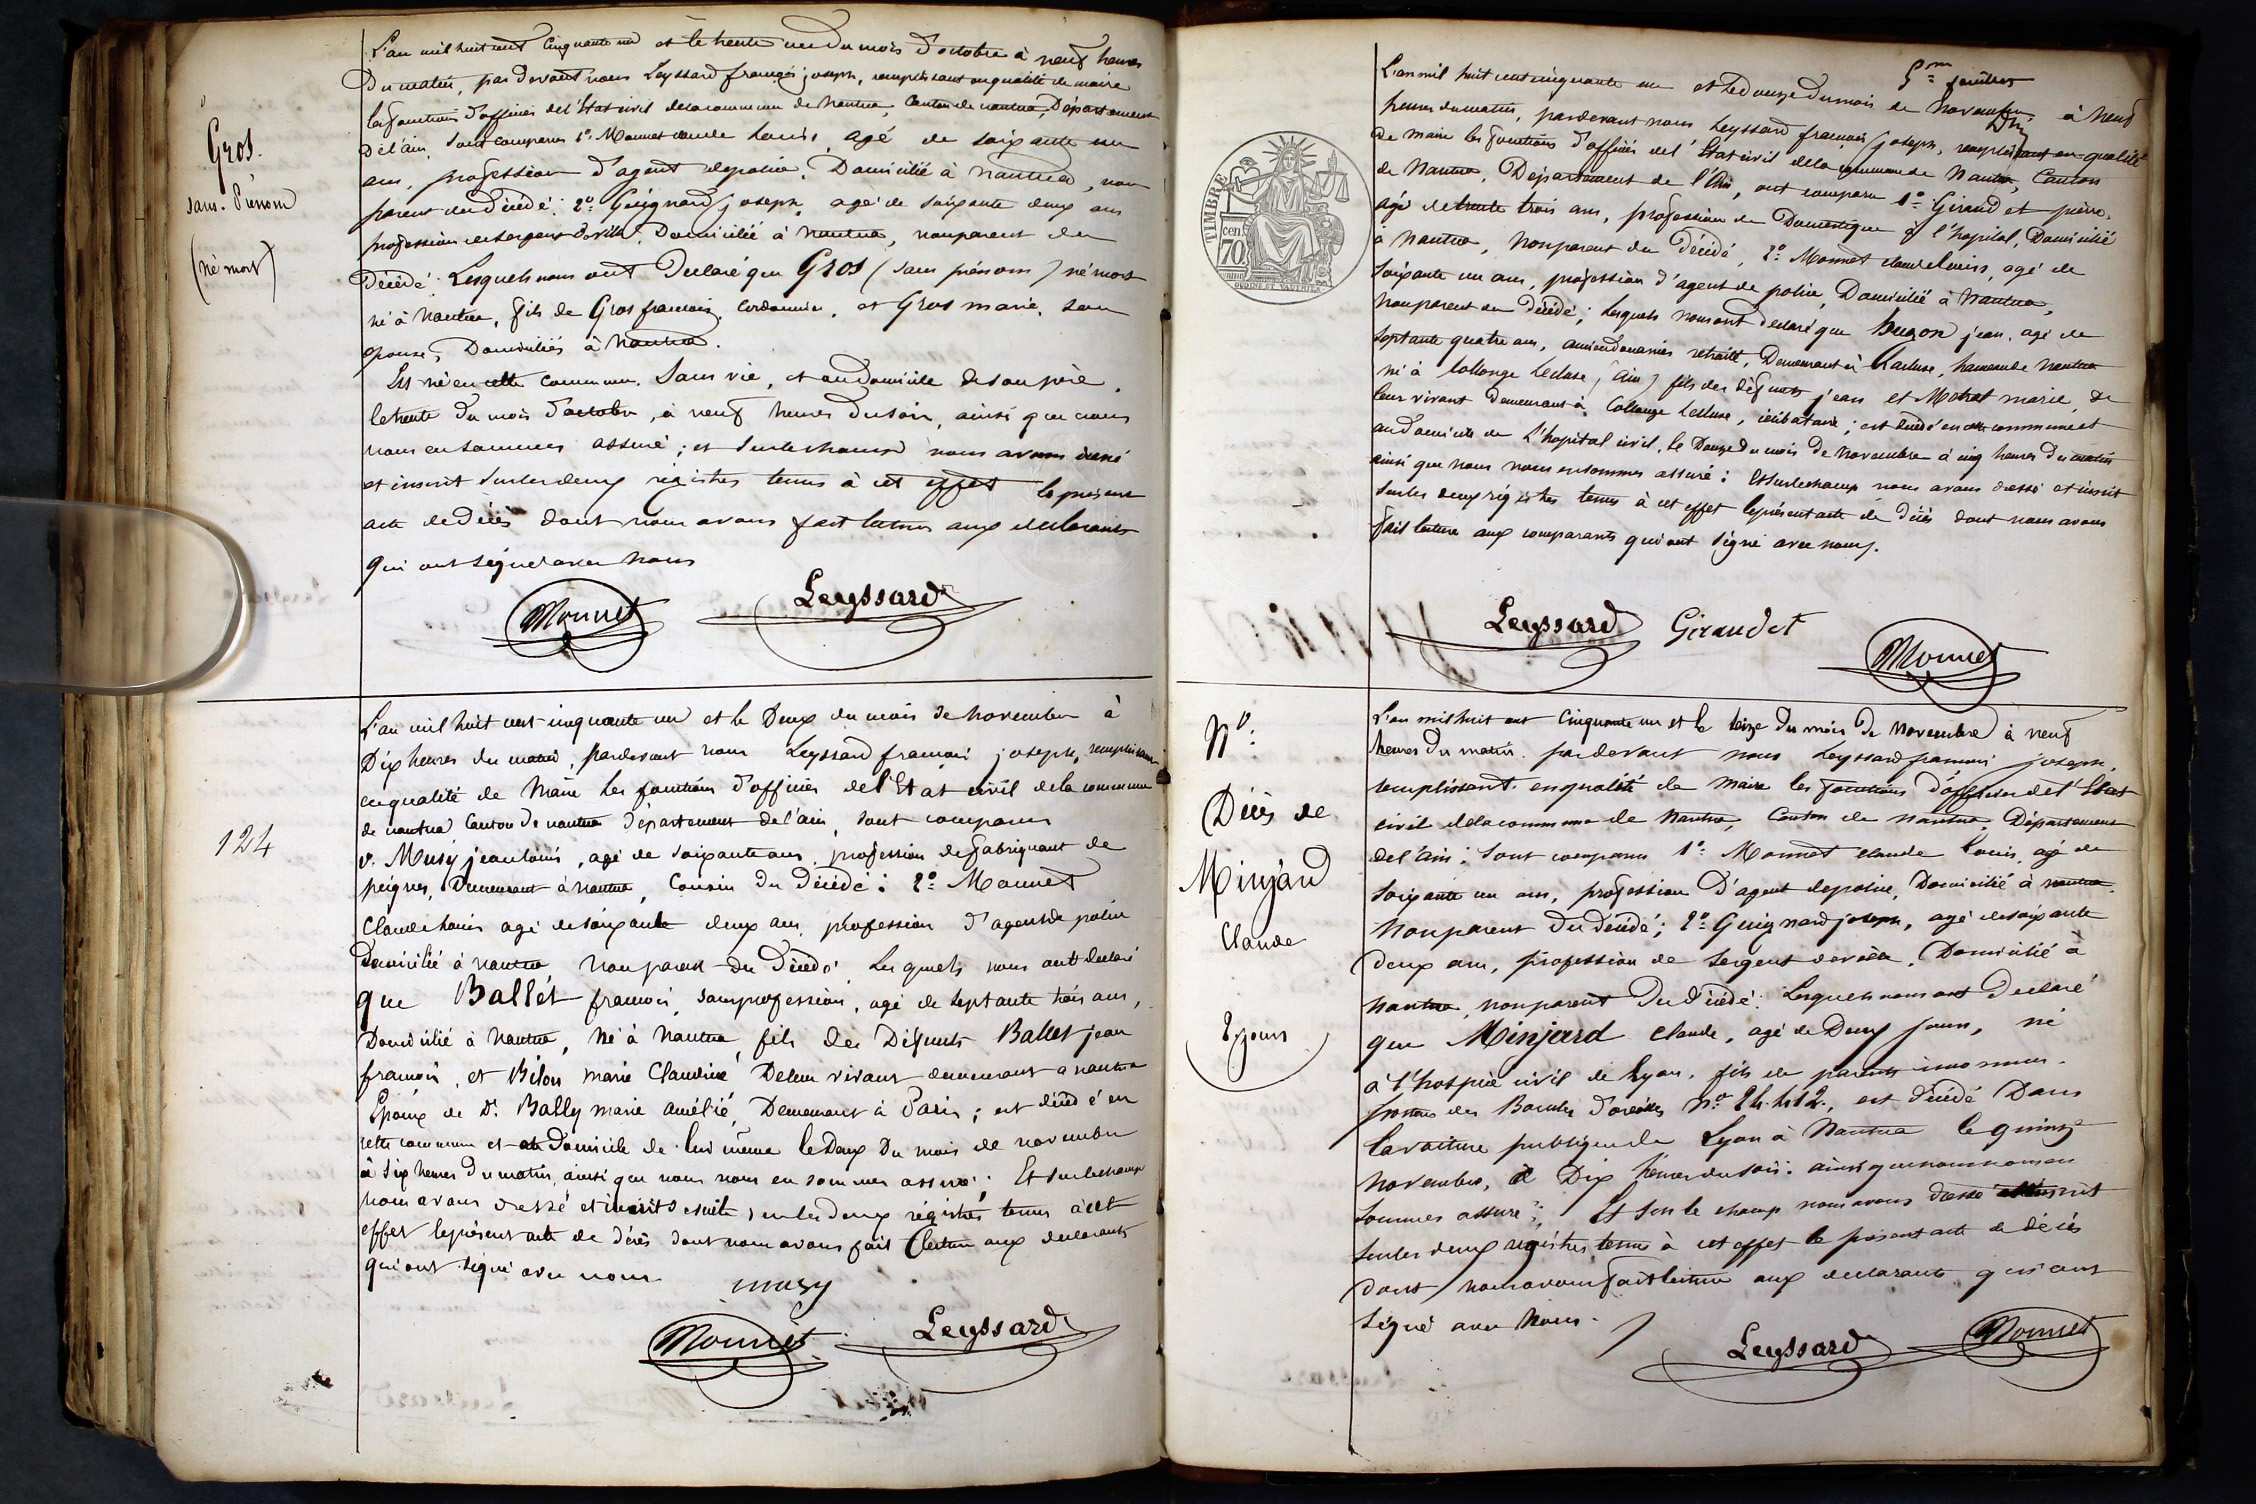 L'an mil huit cent cinquante un et le trente un du mois d'octobre à neuf heures
du matin, par devant nous Leyssard françois joseph, remplissant en qualité de maire
les fonctions d'officier de l'Etat civil de la commune de Nantua, Canton de nantua, Département
de l'ain, sont comparus 1º Monnet claude Louis, agé de soixante un
ans, profession d'agent de police, Domicilié à nantua, non
parent du décédé; 2º Guignard joseph, agé de soixante deux ans
profession de sergent de ville, Domicilié à nantua, non parent du
Décédé. Lesquels nous ont Declaré que Gros (sans prénom) né mort
né à nantua, fils de Gros francois, cordonnier, et Gros marie, son
épouse, Domiciliés à nantua.
Est né en cette commune. Sans vie, et au domicile de son père,
le trente du mois d'octobre, à neuf heures du soir, ainsi que nous
nous en sommes assuré; et sur le champ nous avons dressé
et inscrit sur les deux régistres tenus à cet effet le présent
acte de décès dont nous avons fait lecture aux déclarants
qui ont signé avec nous
Gros.
sans Prénom
(né mort)
Monnet Leyssard
124
L'an mil huit cent cinquante un et le Deux du mois de novembre à
Dix heures du matin, pardevant nous Leyssard francois joseph, remplissant
en qualité de Maire les fonctions d'officier de l'Etat civil de la commune
de nantua Canton de nantua département de l'ain, sont comparus
1º. Musy jean louis, agé de soixante ans, profession de fabriquant de
peignes, Demeurant à nantua, Cousin du Décédé; 2º Monnet
Claude Louis agé de soixante deux ans, profession d'agent de police
Domicilié à nantua non parent du Décédé Lesquels nous ont déclaré
que Ballet francois, sans profession, agé de septante trois ans,
Domicilié à Nantua, Né à Nantua, fils des Défunts Ballet jean
francois, et Bilon marie Claudine De leur vivant demeurant a nantua
Epoux de De. Bally marie amélie, Demeurant à Paris; est décédé en
cette commune et au Domicile de lui même le Deux Du mois de novembre
à six heures du matin, ainsi que nous nous en sommes assuré; Et sur le champ
nous avons dressé et inscrit sur les deux régistres tenus à cet
effet le présent acte de décès dont nous avons fait lecture aux declarants
qui ont signé avec nous
musy
Monnet Leyssard
5me feuillet
L'an mil huit cent cinquante un et le douze du mois de novembre à neuf
heures du matin, pardevant nous Leyssard francois joseph, remplissant en qualité
de maire les fonctions d'officier de l'Etat civil de la commune de Nantua, Canton
de Nantua, Département de l'Ain, ont comparu 1º Giraud et pierre,
agé de trente trois ans, profession de Domestique à l'hopital, Domicilié
à Nantua, Non parent du Décédé, 2º Monnet claude Louis, agé de
soixante un ans, profession d'agent de police, Domicilié à Nantua,
Non parent du décédé; Lesquels nous ont declaré que Buzon jean, agé de
septante quatre ans, ancien douanier retraité, Demeurant à Lacluse, hameau de nantua
né à Collonge Lecluse, (ain) fils des défunts jean et Motret marie, de
leur vivant demeurant à Collonge Lecluse, célibataire; est décédé en cette commune et
au domicile de L'hopital civil, le Douze du mois de novembre à cinq heures du matin
ainsi que nous nous en sommes assuré; Et sur le champ nous avons dressé et inscrit
sur les deux régistres tenus à cet effet le présent acte de décès dont nous avons
fait lecture aux comparants qui ont signé avec nous.
TIMBRE
70 cen
Leyssard Giraudet
Monnet
Nº.
Décès de
Minjard
Claude
2 jours
L'an mil huit cent cinquante un et le seize du mois de novembre à neuf
heures du matin. pardevant nous Leyssard francois joseph,
remplissant en qualité de Maire les fonctions d'officier de l'Etat
civil de la commune de Nantua, Canton de nantua, Département
de l'ain; Sont comparus 1º Monnet claude Louis, agé de
soixante un ans, profession D'agent de police, Domicilié à nantua,
Non parent du décédé; 2º Guignard joseph, agé de soixante
deux ans, profession de sergent de ville, Domicilié à
nantua, non parent du décédé: Lesquels nous ont declaré
que Minjard claude, agé de Deux jours, né
à l'hospice civil de Lyon, fils de parents inconnus.
des Boucles d'oreilles est décédé Dans
la voiture publique de Lyon à Nantua le quinze
novembre, à Dix heures du soir: ainsi que nous nous en
sommes assuré; Et sur le champ nous avons dressé et inscrit
sur les deux registres tenus à cet effet le présent acte de décès
dont nous avons fait lecture aux declarants qui ont
signé avec nous.
Leyssard Monnet